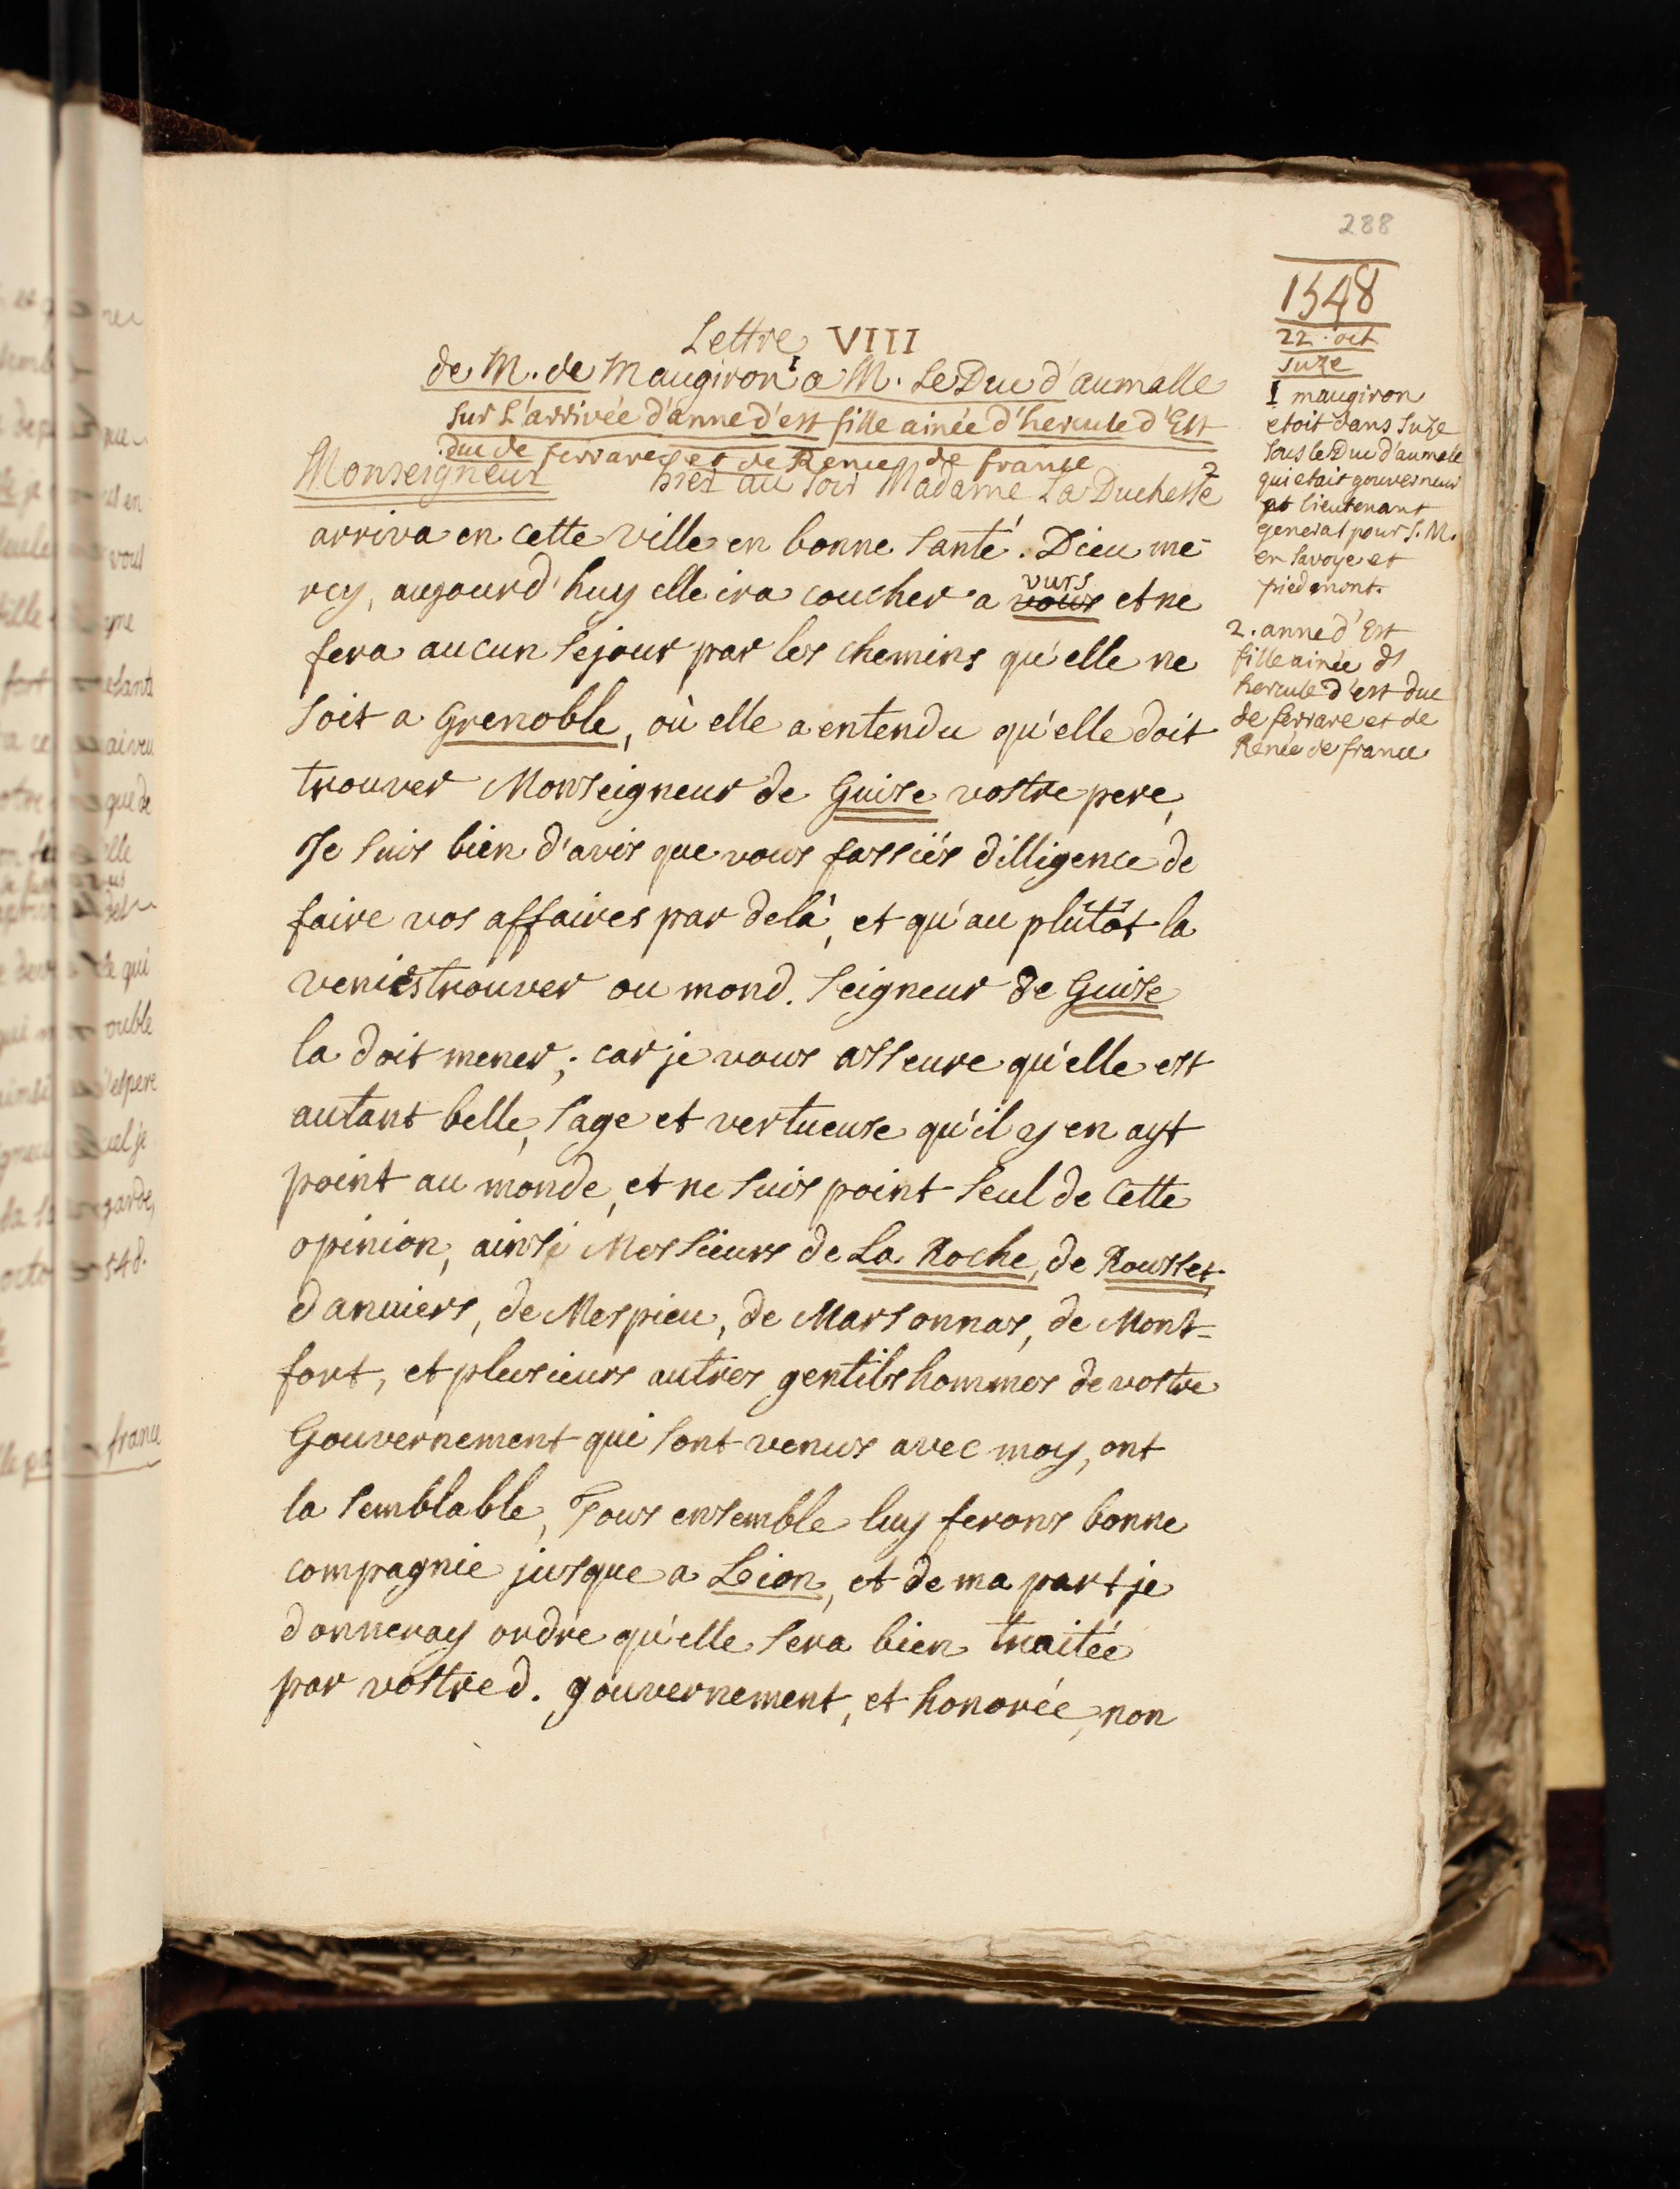 288
1548
22. oct
suze
Lettre VIII
de M. de Maugiron 1 a M. Le Duc d'aumalle
sur L'arrivée d'anne d'est fille ainée d'hercule d'Est
duc de ferrare et de Renee de france
Monseigneur hier au soir Madame La Duchesse 2
arriva en cette ville en bonne santé. Dieu me-
rcy, aujourd'huy elle ira coucher a vous vurs et ne
fera aucun sejour par les chemins qu'elle ne
soit a Grenoble, où elle a entendu qu'elle doit
trouver Monseigneur de Guise vostre pere,
Je suis bien d'avis que vous fassiés dilligence de
faire vos affaires par delà, et qu'au plûtôt la
veniés trouver ou mond. seigneur de Guise
la doit mener; car je vous asseure qu'elle est
autant belle, sage et vertueuse qu'il y en ayt
point au monde, et ne suis point seul de cette
opinion, ainsi Messieurs de La Roche, de Rousset
danuiers, de Mespieu, de Marsonnas, de Mont-
fort, et plusieurs autres gentilshommes de vostre
Gouvernement qui sont venus avec moy, ont
la semblable, Tous ensemble luy ferons bonne
compagnie jusque a Lion, et de ma part je
donneray ordre qu'elle sera bien traitée
par vostred. gouvernement, et honorée, non
1 maugiron
etoit dans suze
sous le Duc d'aumale
qui etait gouverneur
et lieutenant
general pour S. M.
en savoye et
piedmont.
2. anne d'Est
fille ainée d
hercule d'est duc
de ferrare et de
Renée de france